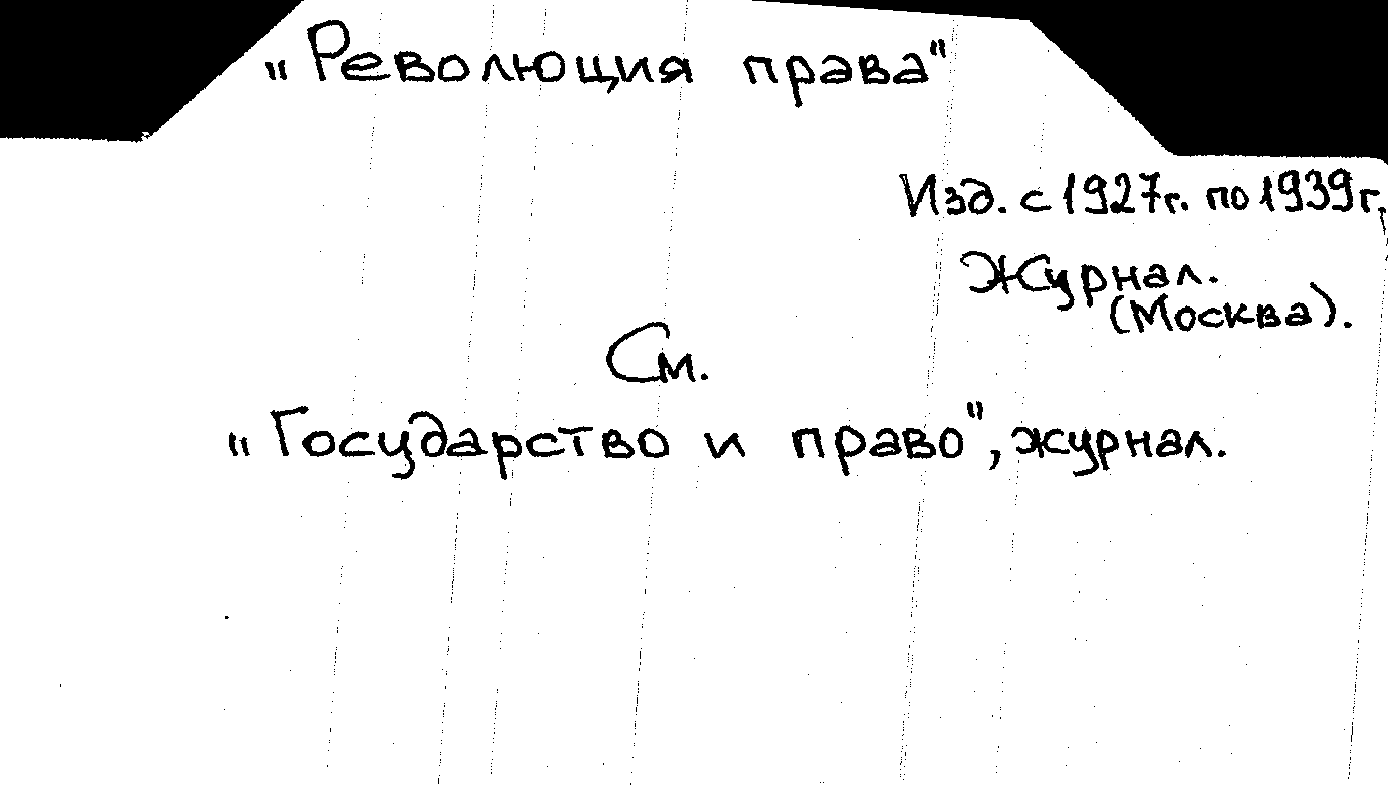 "Революция права"
Изд. с 1927г. по 1939г.
Журнал.
(Москва).
См.
"Государство и право", журнал.